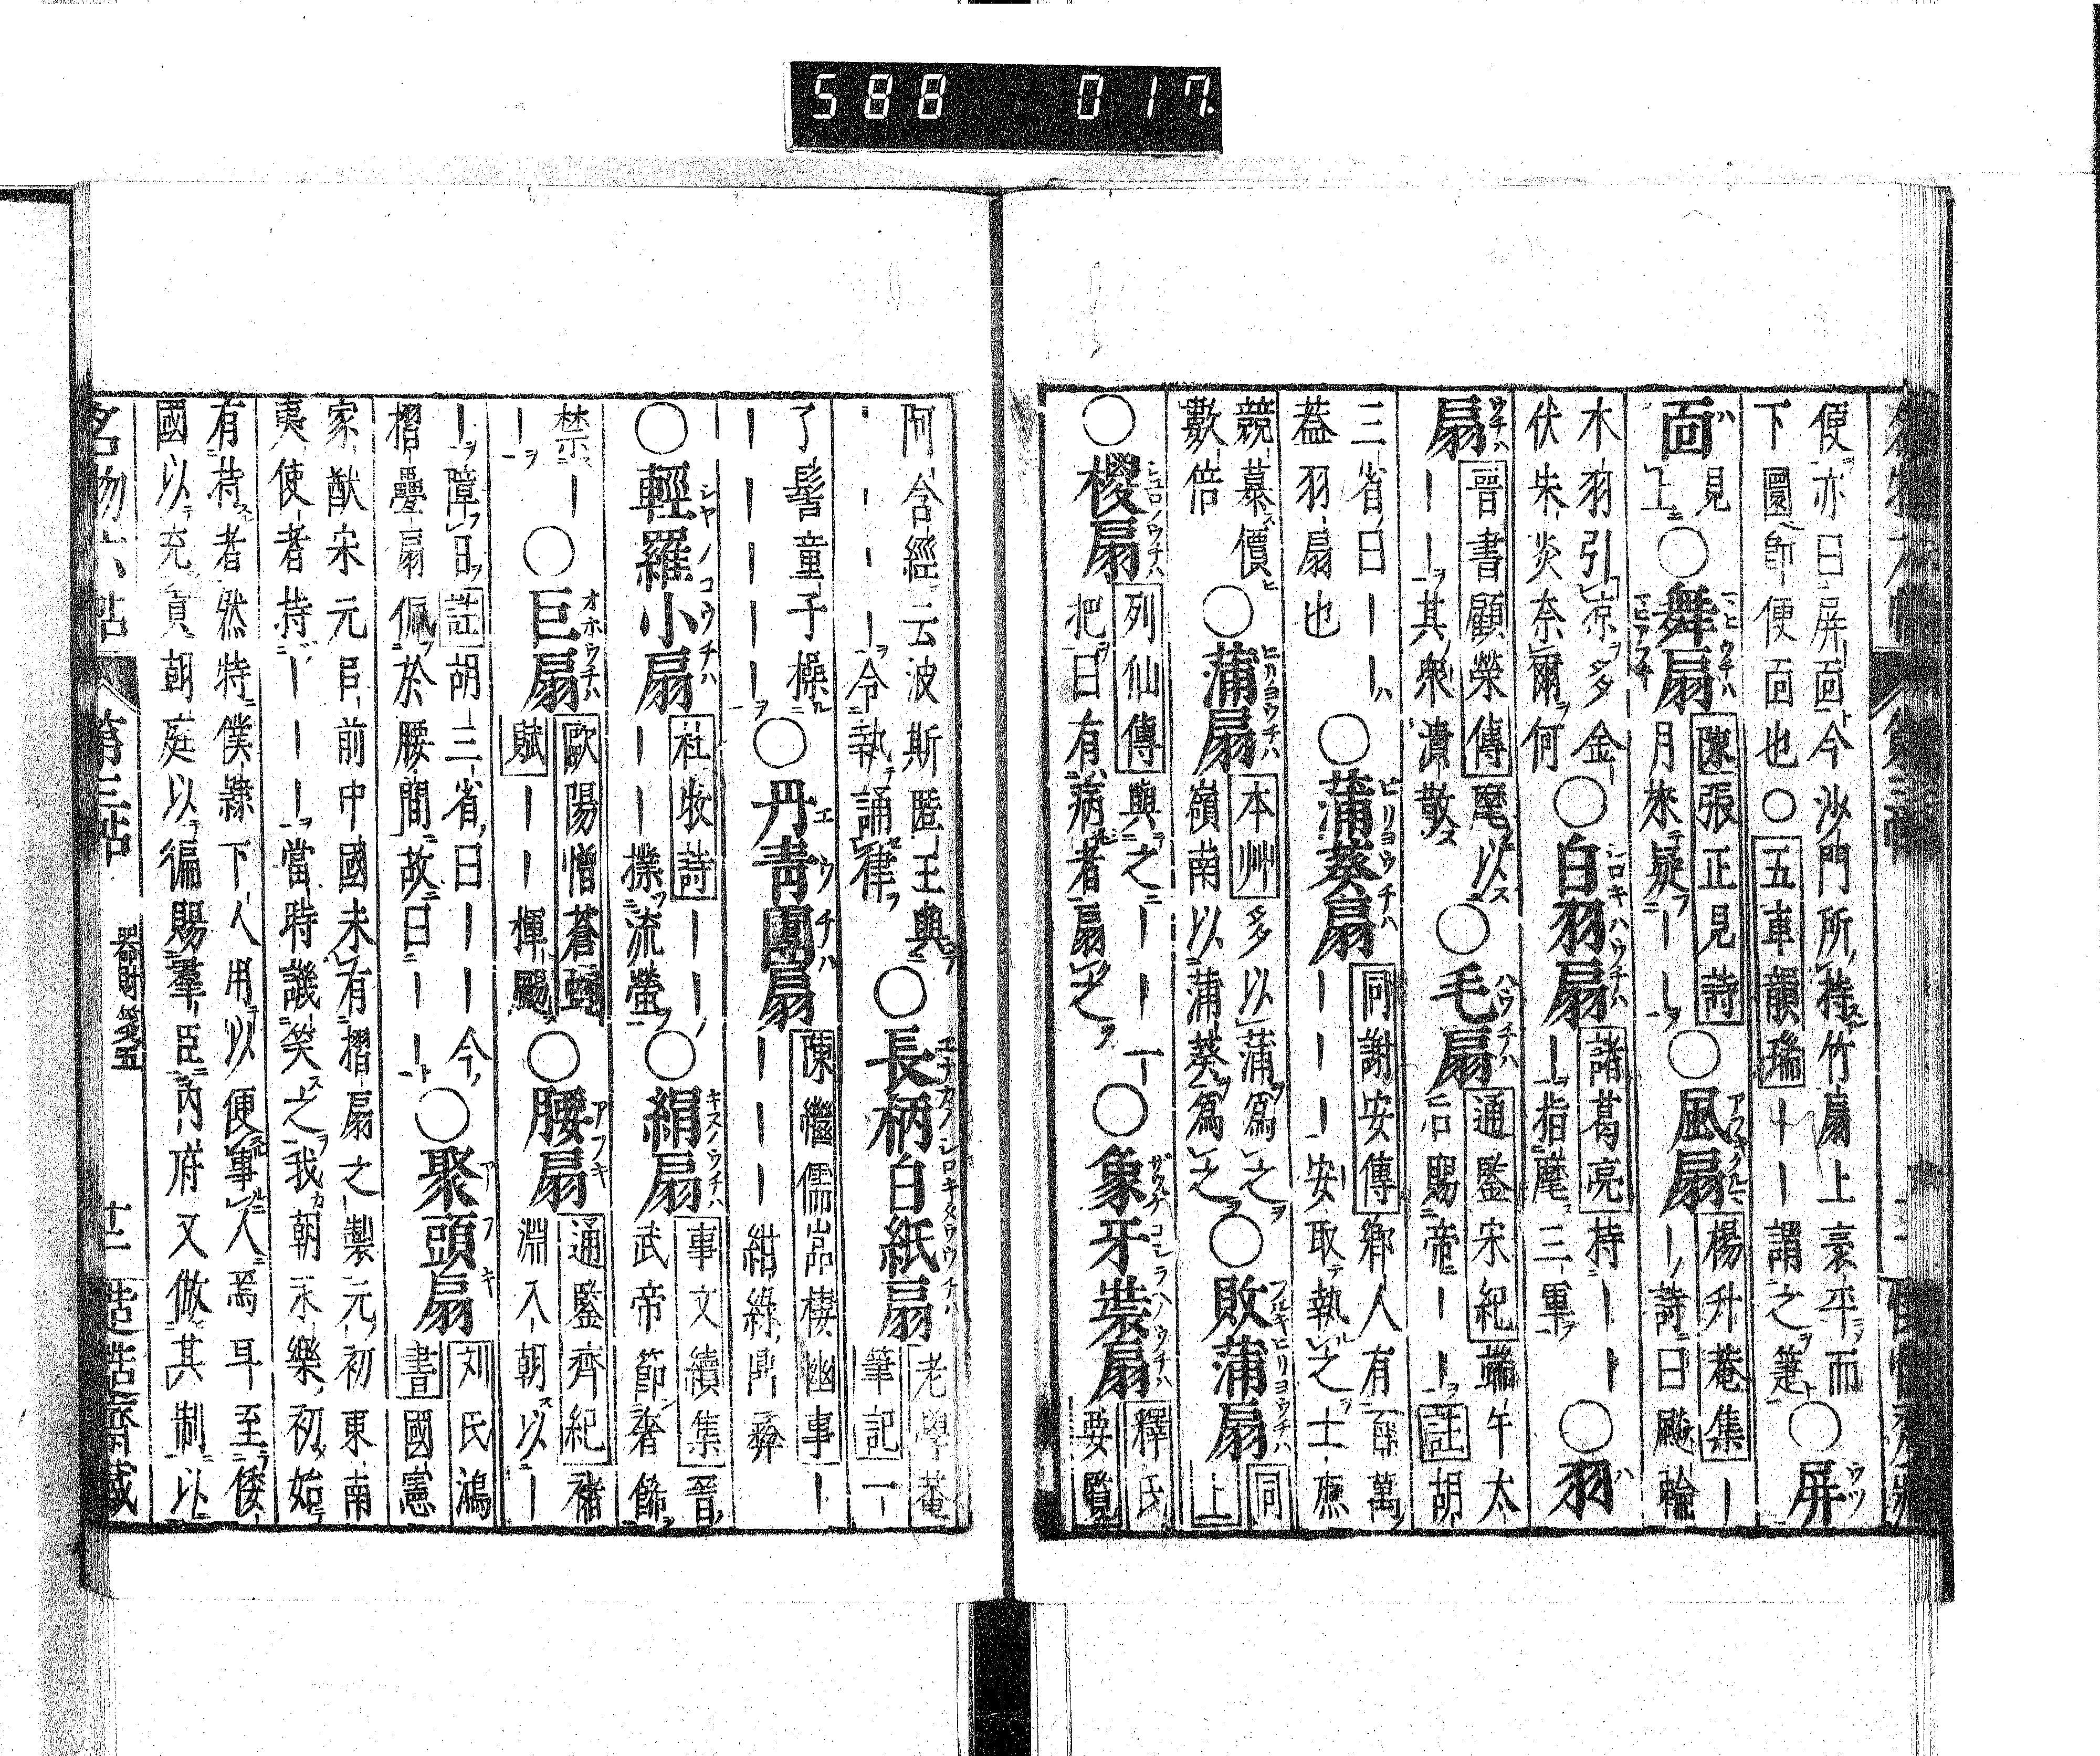 便亦曰屏面今沙門所持竹扇上袤平而
下圜即便面也○五車韻瑞｜｜謂之箑
○屏
面
見
上
○舞扇
陳張正見詩
月來疑｜｜
○風扇
楊升菴集｜
｜詩曰飈輪
木羽引凉多金
伏朱炎奈爾何
○白羽扇
諸葛亮持｜｜
｜指麾三軍
○羽
扇
晉書顧榮傳麾以
｜｜其衆潰散
○毛扇
通鑑宋紀端午太
后賜帝｜｜註胡
三省曰｜｜
蓋羽扇也
○蒲葵扇
同謝安傳鄉人有萬
｜｜｜安取執之士庶
競慕價
數倍
○蒲扇
本州多以蒲爲之
嶺南以蒲葵爲之
○敗蒲扇
同
上
○椶扇
列仙傳與之｜｜一
把曰有病者扇之
○象牙裝扇
釋氏
要覧
阿含經云波斯匿王典
｜｜｜｜令執誦律
○長柄白紙扇
老學菴
筆記一
了髻童子操
｜｜｜｜｜
○丹青團扇
陳繼儒嵓棲幽事｜
｜｜｜紺綠鼎彝
○輕羅小扇
杜牧詩｜｜
｜｜撲流螢
○絹扇
事文續集晉
武帝節奢飾
禁｜
｜
○巨扇
歐陽憎蒼蠅
賦｜｜揮颺
○腰扇
通鑑齊紀褚
淵入朝以｜
｜障日註胡三省曰｜｜今
摺疊扇佩於腰間故曰｜｜
○聚頭扇
刘氏鴻
書國憲
家猷宋元㠯前中國未有摺扇之製元初東南
夷使者持｜｜｜當時譏笑之我朝永樂初始
有持者然特僕隷下人用以便事人焉耳至倭
國以充貢朝庭以徧賜羣臣內府又倣其制以
名物六帖
第三帖
器財箋五
廿一